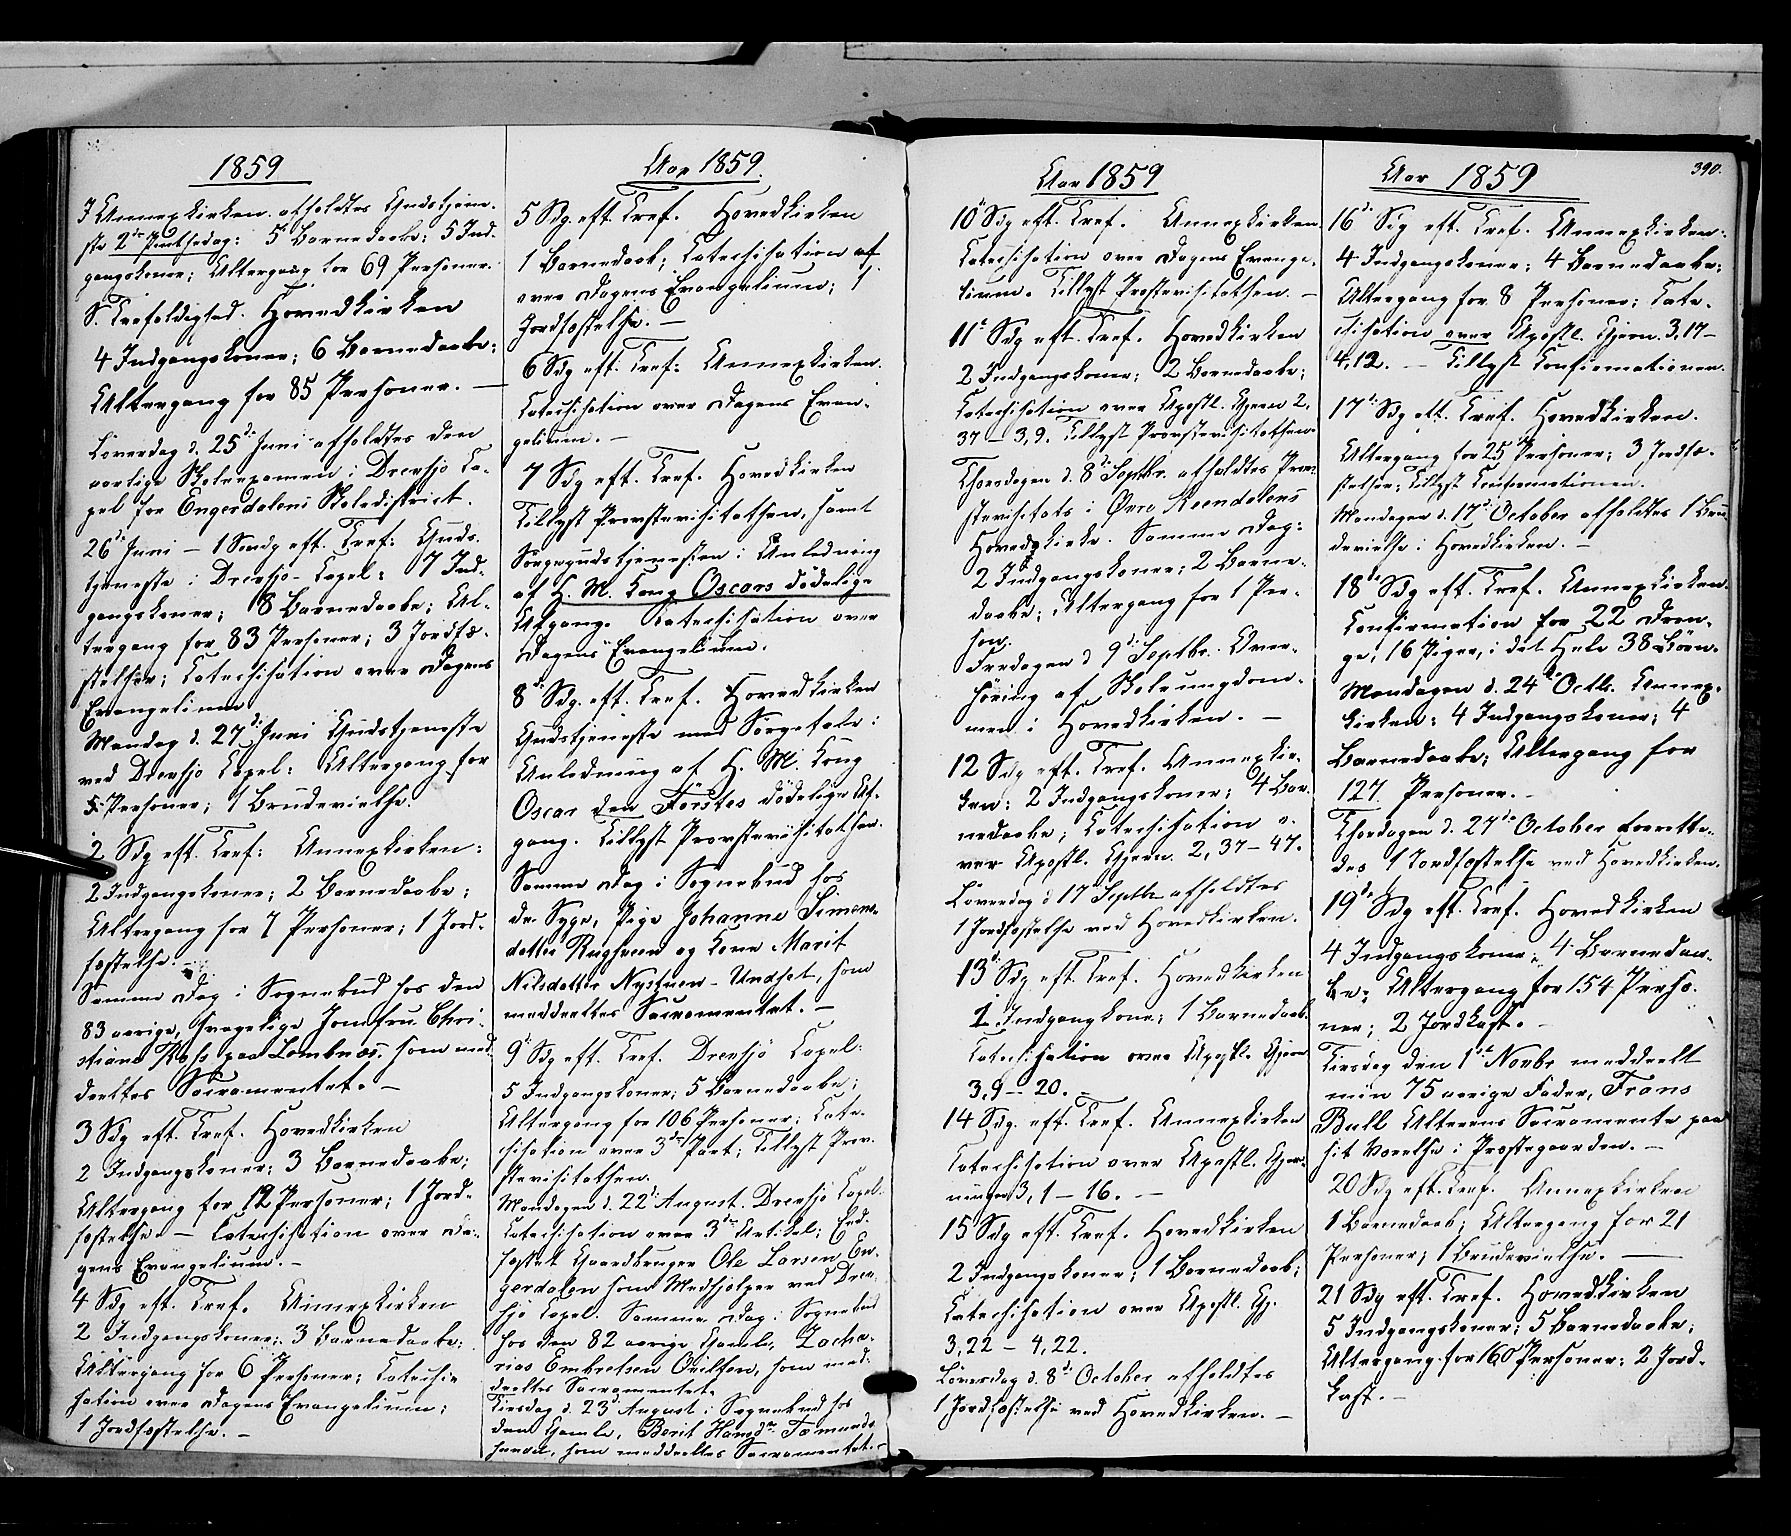 1859
I Annexkirken afholdtes Gudstjene-
ste 2den Pintsedag: 5 Barnedaabe; 5 Ind-
gangskoner; Altergang for 69 Personer.
S. Trefoldighed. Hovedkirken
4 Indgangskoner; 6 Barnedaabe;
Altergang for 85 Personer. —
Löverdag d. 25de Juni afholdtes den
aarlige Skoleexamen i Drevsjö Ca-
pel for Engerdalens Skoledistrict.
26de Juni – 1 Søndg eft. Tref: Guds-
tjeneste i Drevsjö-Capel: 7 Ind-
gangskoner; 8 Barnedaabe; Al-
tergang for 83 Personer; 3 Jordfæ-
stelser; Catechisation over Dagens
Evangelium.
Mandag d. 27de Juni Gudstjeneste
ved Drevsjö Capel: Altergang for
5 Personer; 1 Brudevielse.
2 Sdg eft. Tref: Annexkirken:
2 Indgangskoner; 2 Barnedaabe;
Altergang for 7 Personer; 1 Jord-
fæstelse. –
Samme Dag i Sognebud hos den
83 aarige, svagelige Jomfru Chri-
stiane paa Lombnæs, som med-
deeltes Sacramentet. –
3 Sdg eft. Tref. Hovedkirken
2 Indgangskoner; 3 Barnedaabe;
Altergang for 12 Personer; 1 Jord-
fæstelse. – Catechisation over Da-
gens Evangelium. –
4 Sdg eft. Tref. Annexkirken
2 Indgangskoner; 3 Barnedaabe;
Altergang for 6 Personer; Catechi-
sation over Dagens Evangelium;
1 Jordfæstelse. –
Aar 1859.
5 Sdg. eft. Tref. Hovedkirken
1 Barnedaab; Catechisation af
over Dagens Evangelium; 1
Jordfæstelse. –
6 Sdg eft. Tref: Annexkirken.
Catechisation over Dagens Evan-
gelium. –
7 Sdg eft. Tref. Hovedkirken
Tillyst Provstevisitatsen, samt
Sørgegudstjenesten i Anledning
af H. M. Kong Oscars dödelige
Afgang. Catechisation over
Dagens Evangelium.
8de Sdg. eft. Tref. Hovedkirken
Gudstjeneste med Sørgetale i
Anledning af H. M. Kong
Oscar den Förstes dödelige Af-
gang. Tillyst Provstevisitatsen.
Samme Dag i Sognebud hos
de Syge, Pige Johanne Simens-
datter Rugsveen og Kone Marit
Nilsdatter Nystuen-Undset, som
meddeeltes Sacramentet. –
9de Sdg eft. Tref. Drevsjö Capel:
5 Indgangskoner; 5 Barnedaabe;
Altergang for 106 Personer; Cate-
chisation over 3die Part; Tillyst Prov-
stevisitatsen.
Mandagen d. 22de August. Drevsjö Capel.
Catechisation over 3die Artikel; Ind-
sattes Gaardbruger Ole Larsen En-
gerdalen som Medhjelper ved Drev-
sjö Capel. Samme Dag i Sognebud
hos den 82 aarige Gamle, Zacha-
rias Embretsen, som med-
deeltes Sacramentet.
Tirsdag d. 23de August i Sognebud hos
den Gamle, Berit Hansdr Fæmunds-
, som meddeeltes Sacramentet. –
Aar 1859
10de Sdg eft. Tref. Annexkirken.
Catechisation over Dagens Evange-
lium. Tillyst Provstevisitatsen. –
11te Sdg eft. Tref. Hovedkirken
2 Indgangskoner; 2 Barnedaabe;
Catechisation over Apostl. Gjern 2,
37 – 3,9. Tillyst Provstevisitatsen.
Thorsdagen d. 8de Septbr. afholdtes Prov-
stevisitats i Øvre Reendalens
Hovedkirke. Samme Dag:
2 Indgangskoner; 2 Barne-
daabe; Altergang for 1 Per-
son.
Fredagen d 9de Septbr. Over-
höring af Skoleungdom-
men i Hovedkirken. –
12 Sdg eft. Tref. Annexkir-
ken: 2 Indgangskoner; 4 Bar-
nedaabe; Catechisation o-
ver Apostl. Gjern. 2,37–47.
Löverdag d 17de Septbr afholdtes
1 Jordfæstelse ved Hovedkirken.
13de Sdg eft Tref. Hovedkirken
1 Indgangskone; 1 Barnedaab.
Catechisation over Apostl. Gjern
3,9 – 20. –
14 Sdg. eft. Tref. Annexkirken
Catechisation over Apostl. Gjer-
ninger 3, 1 – 16. –
15 Sdg eft. Tref. Hovedkirken
2 Indgangskoner; 1 Barnedaab;
Catechisation over Apostl. Gj.
3,22 – 4,22.
Löverdag d. 8de October afholdtes
1 Jordfæstelse ved Hovedkirken. –
Aar 1859
390.
16de Sdg eft. Tref. Annexkirken:
4 Indgangskoner; 4 Barnedaabe;
Altergang for 8 Personer; Cate-
chisation over Apostl. Gjern. 3,17–
4,12. – Tillyst Confirmationen.
17de Sdg eft. Tref. Hovedkirken.
Altergang for 25 Personer; 3 Jordfæ-
stelser; Tillyst Confirmationen.
Mandagen d. 17de October afholdtes 1 Bru-
devielse i Hovedkirken. –
18de Sdg eft. Tref. Annexkirken.
Confirmation for 22 Dren-
ge, 16 Piger, i det Hele 38 Börn.
Mandagen d. 24de Octbr. Annex-
kirken: 4 Indgangskoner; 4
Barnedaabe; Altergang for
127 Personer. –
Thorsdagen d. 27de October forrette-
des 1 Jordfæstelse ved Hovedkirken.
19de Sdg eft. Tref. Hovedkirken
4 Indgangskoner; 4 Barnedaa-
be; Altergang for 154 Perso-
ner; 2 Jordkast. –
Tirsdag den 1ste Novbr meddeelt
min 75 aarige Fader, Frans
Bull Alterens Sacramente paa
sit Værelse i Præstegaarden. –
20 Sdg eft. Tref. Annexkirken
1 Barnedaab; Altergang for 21
Personer; 1 Brudevielse. —
21 Sdg eft. Tref. Hovedkirken
5 Indgangskoner; 5 Barnedaabe;
Altergang for 160 Personer; 2 Jord-
kast. –